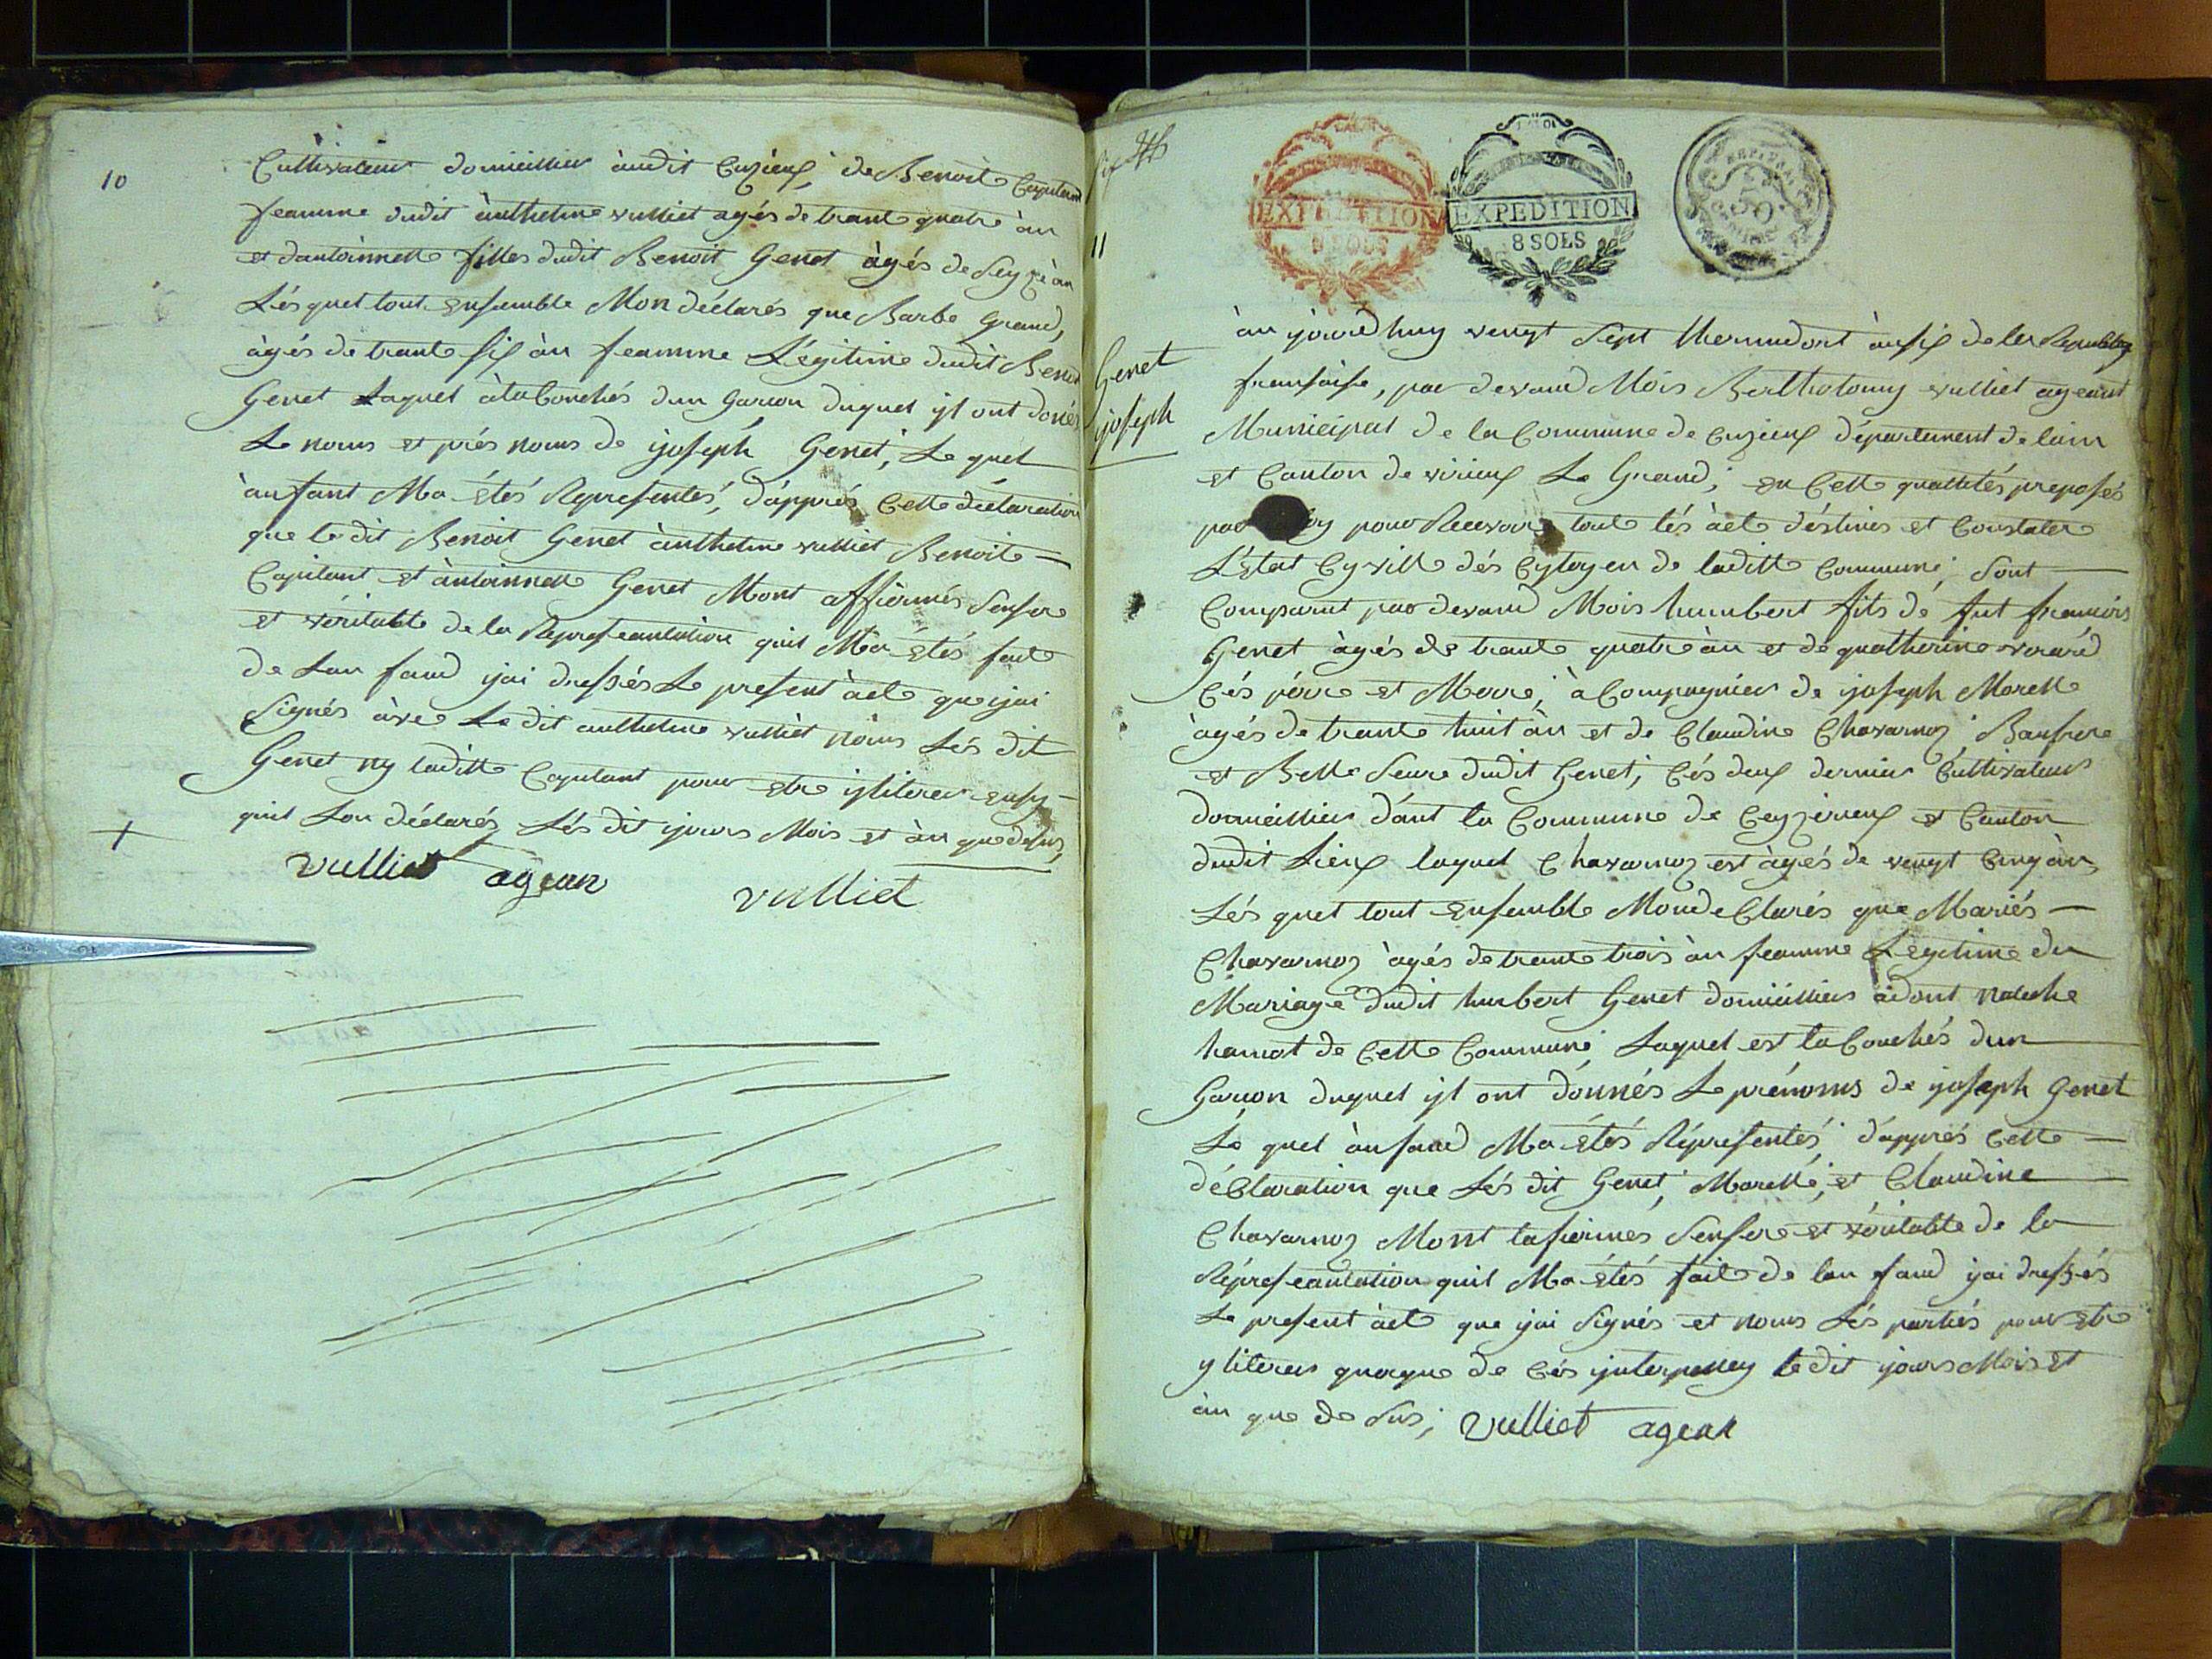 10
Cultivateur domicillier audit Cuzieux, de Benoite Capitant
feamme dudit anthelme vulliet agés de trante quatre àn
et dantoinnette filles dudit Benoit Genet àgés de Seyzé àn
Lésquel tout ensemble Mon déclarés que Barbe Grand,
àgés de trante six àn feamme Légitime dudit Benoit
Genet Laquel àtacouchés dun Garcon duquel yl ont donés
Le noms et prés noms de yoseph Genet, Le quel
ànfant Ma étés Representés, d'apprés Cette déclaration
que le dit Benoit Genet ànthelme vulliet Benoite
Capitant et àntoinnette Genet Mont affiermés Senfere
et véritable de la Representation quil Ma étés faite
de Lan fand yai dressés Le present àcte que yai
Signés àvec Le dit anthelme vulliet noms Lés dit
Genet ny laditte Capitant pour etre yliterer ensy
quil Lon déclarés Lés dit yours Mois et àn que desus,
vulliet agean vulliet
11
EXPEDITION
8 SOLS
EXPEDITION
8 SOLS
50
Genet
yoseph
àu yourdhuy vengt Sept thermidort ànsix de la Republiq
fransaise, par devand Mois Barthelomy vulliet ageant
Municipal de la Commune de Cuzieux département de lain
et Canton de virieux Le Grand, en Cette qualités preposés
par loy pour Recevoir tout lés àcte déstinés et Constater
L'état Cyville dés Cytoyen de laditte Commune, Sont
Comparut par devand Mois humbert fils de fut francois
Genet àgés de trante quatre àn et de quatherine
Cés pérre et Merre, à Compagnier de yoseph Morelle
àgés de trante huit àn et de Claudine Chavarnoz Baufrere
et Belle Seure dudit Genet, Cés deux dernier Cultivateur
domicillier dant la Commune de Ceyzerieux et Canton
dudit Lieux laquel Chavarnoz est àgés de vengt Cinq àn,
Lés quel tout ensemble Mondeclarés que Mariés
Chavarnoz àgés de trante trois àn feamme Légitime du
Mariage dudit humbert Genet domicillier àdont
hamot de Cette Commune, Laquel est tacouchés dun
Garcon duquel yl ont donnés Le prénoms de yoseph Genet
Le quel ànfand Ma étés Représentés, d'apprés Cette
déClaration que Lés dit Genet, Morelle, et Claudine
Chavarnoz Mont tafiermés Senfere et véritable de la
Répréseantation quil Ma étés faite de lan fand yai dressés
Le present àcte que yai Signés et noms Lés partiés pour etre
yliterer quoyque de Cés le dit yours Mois et
àn que de Sus, vulliet agean